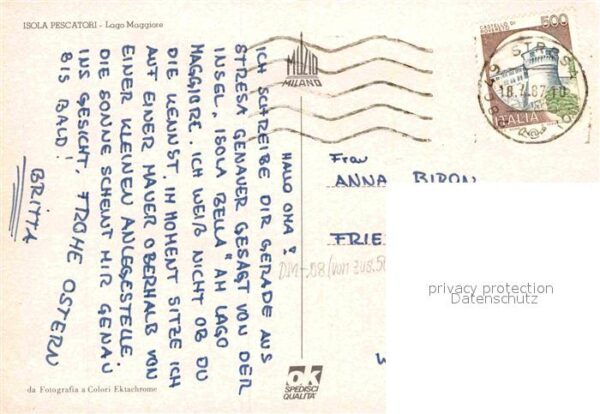 ISOLA PESCATORI - Lago Maggiore
HALLO OMA!
ICH SCHREIBE DIR GERADE AUS
STRESA GENAUER GESAGT VON DER
INSEL „ISOLA BELLA" AM LAGO
MAGGIORE. ICH WEIß NICHT OB DU
DIE KENNST. IM MOMENT SITZE ICH
AUF EINER MAUER OBERHALB VON
EINER KLEINEN ANLEGESTELLE.
DIE SONNE SCHEINT MIR GENAU
INS GESICHT. FROHE OSTERN
BIS BALD!
BRITTA
da Fotografia a Colori Ektachrome
MUZIO
MILANO
ok
SPEDISCI
QUALITA'
CASTELLO DI
500
ITALIA
STRESA
87-10
Frau
ANNA BIRON
FRIE
privacy protection
Datenschutz